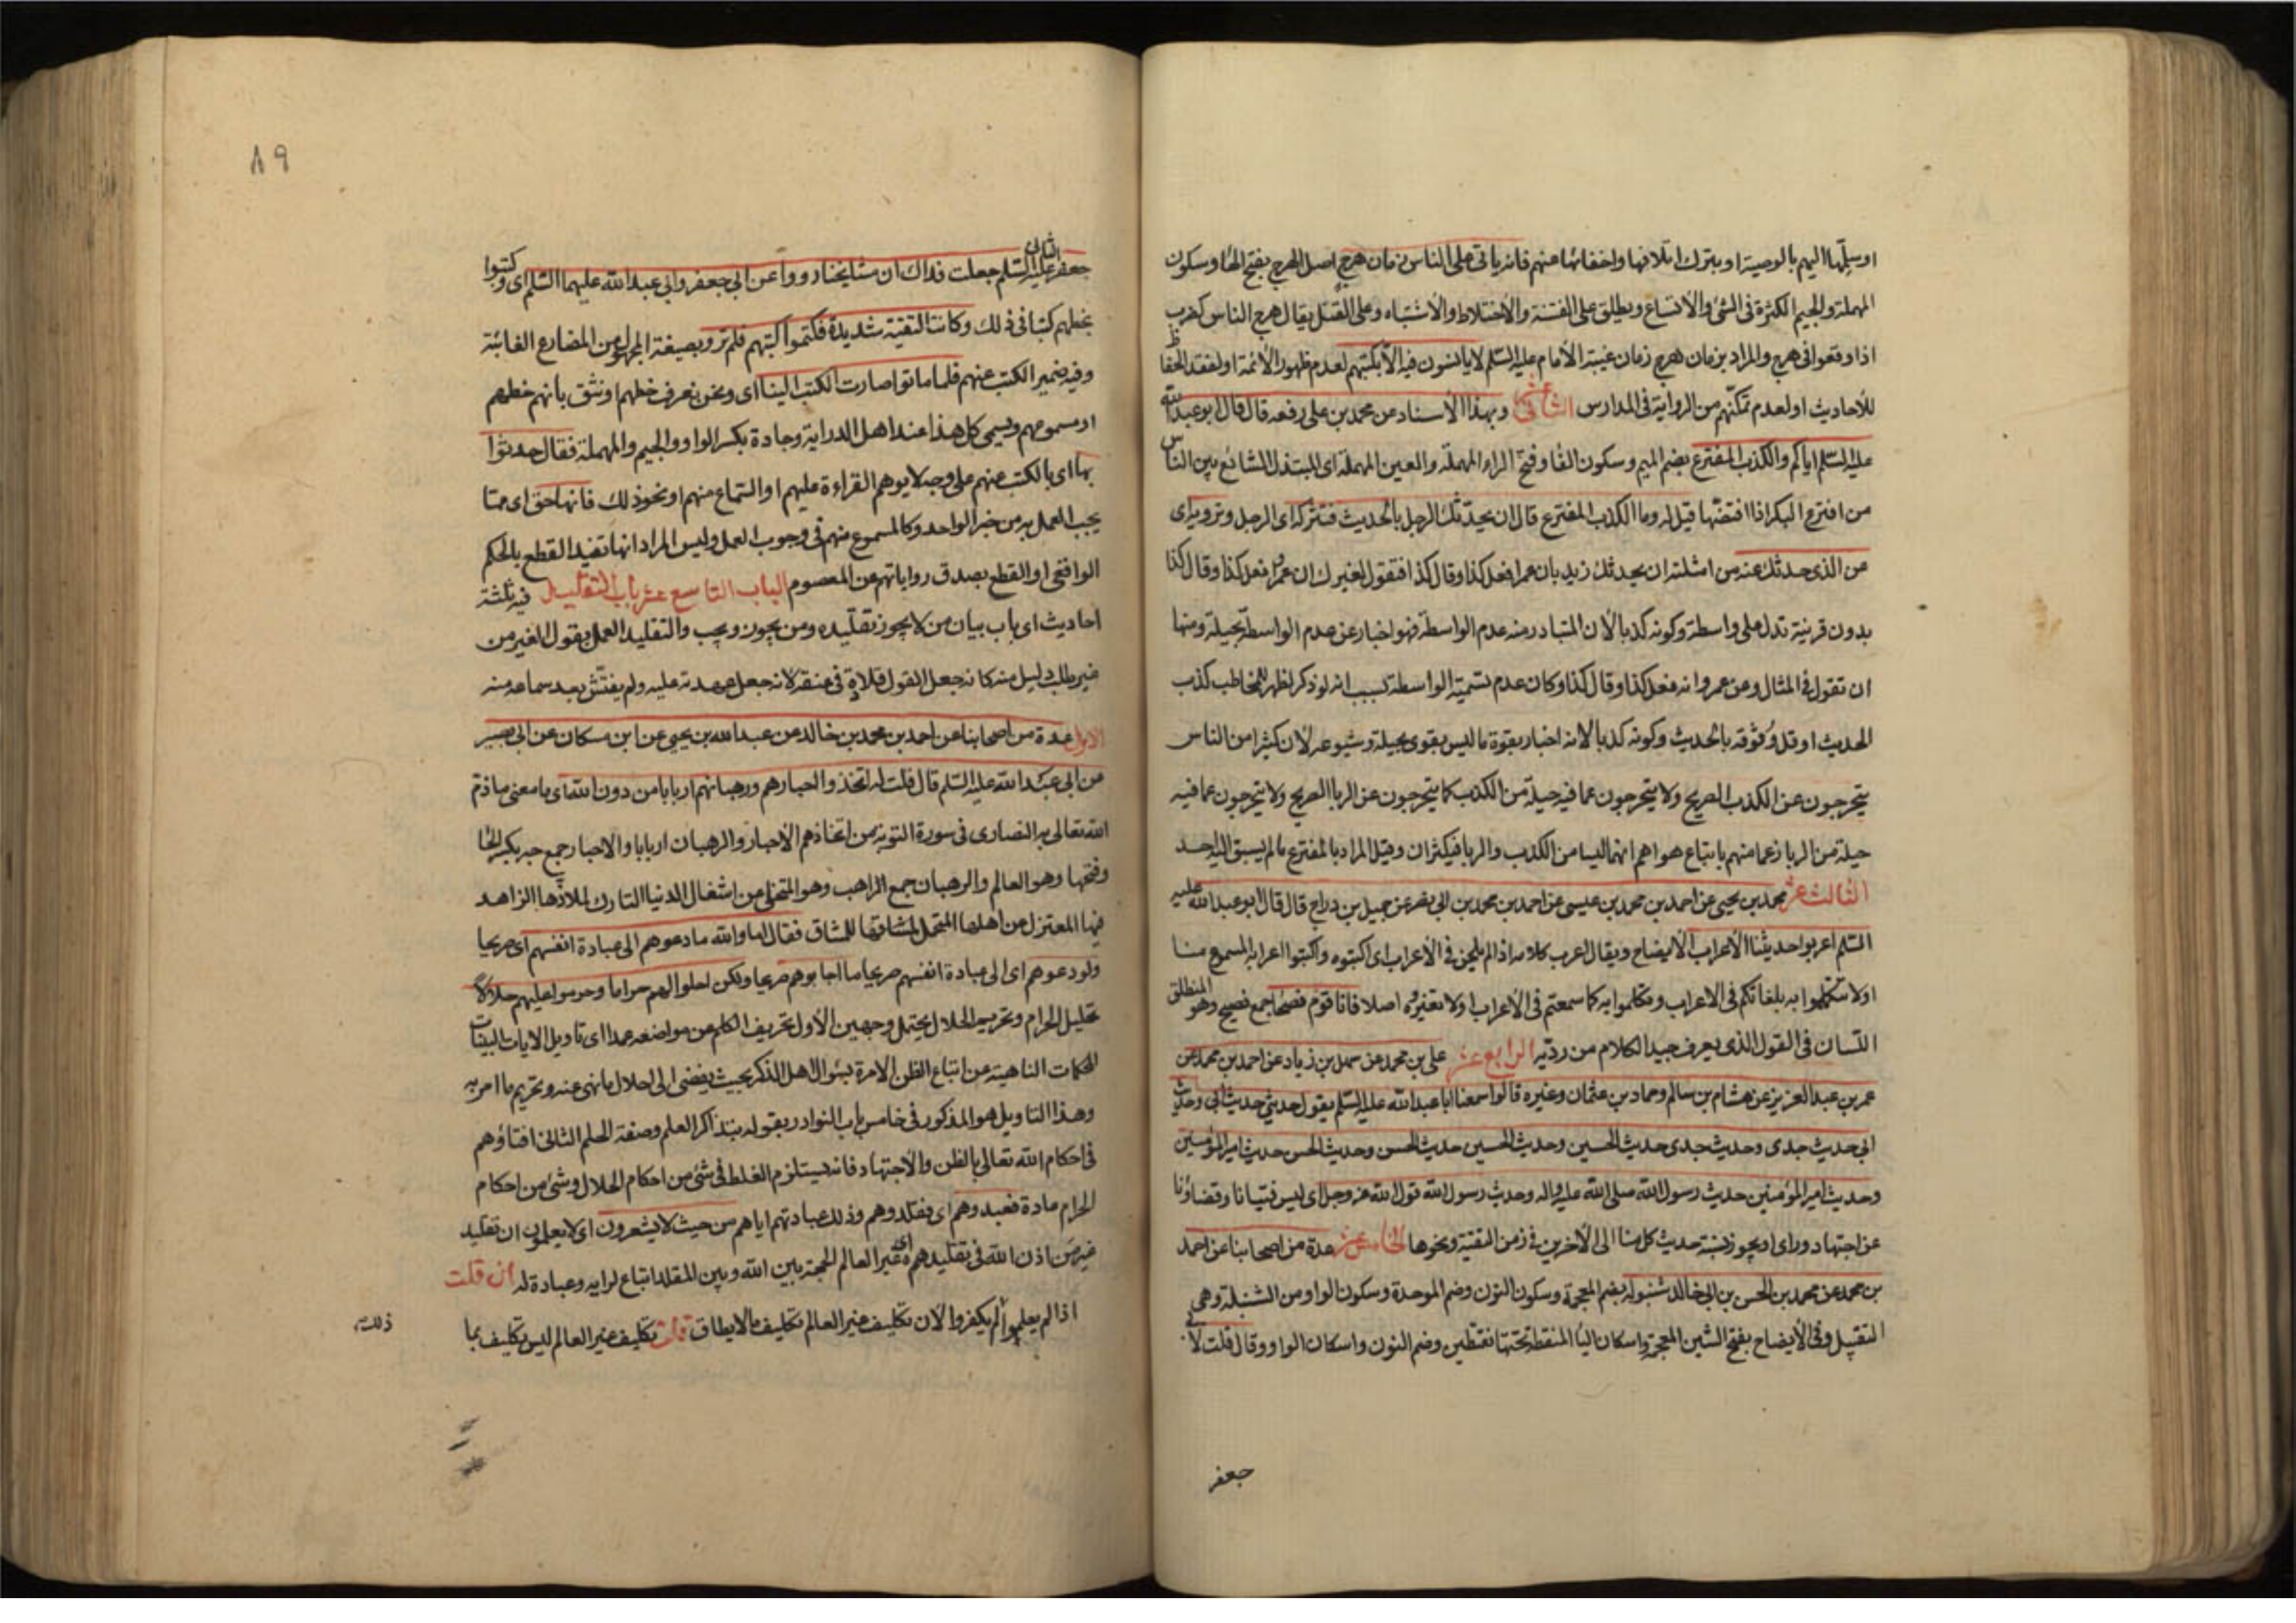 او سبلها اليهم بالوصية او بترك اتلافها واخفائها عنهم فانه ياتى على الناس زمان هرج اصل الهرج بفتح الهاء وسكون
المهملة والجيم الكثرة فى الشئ والاتساع ويطلق على الفتنة والاختلاط والاشتباه وعلى القتل يقال هرج الناس كضرب
اذا وقعوا فى هرج والمراد بزمان هرج زمان غيبة الامام عليه السلم لا يانسون فيه الا بكتبهم لعدم ظهور الائمة او لفقد الحفاظ
للاحاديث او لعدم تمكنهم من الرواية فى المدارس الثانى عشر وبهذا الاسناد عن محمد بن على رفعه قال قال ابو عبد الله
عليه السلم اياكم والكذب المفترع بضم الميم وسكون الفا وفتح الراء المهملة والعين المهملة اى المبتذل الشائع بين الناس
من افترع البكر اذا افتضها قيل له وما الكذب المفترع قال ان يحدثك الرجل بالحديث فتتركه اى الرجل وترويه اى
عن الذى حدثك عنه من امثلته ان يحدثك زيد بان عمرا فعل كذا وقال كذا فتقول لغيرك ان عمرا فعل كذا وقال كذا
بدون قرينة تدل على واسطة وكونه كذبا لان المتبادر منه عدم الواسطة فهو اخبار عن عدم الواسطة بحيلة ومنها
ان تقول فى المثال وعن عمرو انه فعل كذا وقال كذا وكان عدم تسمية الواسطة بسبب انه لو ذكر لظهر للمخاطب كذب
الحديث او قل وثوقه بالحديث وكونه كذبا لانه اخبار بقوة ما ليس بقوى بحيلة وشيوعه لان كثيرا من الناس
يتحرجون عن الكذب الصريح ولا يتحرجون عما فيه حيلة من الكذب كما يتحرجون عن الربا الصريح ولا يتحرجون عما فيه
حيلة من الربا زعما منهم باتباع هواهم انهما ليسا من الكذب والربا فيكثران وقيل المراد بالمفترع ما لم يسبق اليه احد
الثالث عشر محمد بن يحيى عن احمد بن محمد بن عيسى عن احمد بن محمد بن ابى نصر عن جميل بن دراج قال قال ابو عبد الله عليه
السلم اعربوا حديثنا الاعراب الايضاح ويقال اعرب كلامه اذا لم يلحن فى الاعراب اى اكتبوه واكتبوا اعرابه المسموع منا
او لا تتكلموا به بلغاتكم فى الاعراب وتكلموا به كما سمعتم فى الاعراب ولا تغيروه اصلا فانا قوم فصحا جمع فصيح وهو المنطلق
اللسان فى القول الذى يعرف جيد الكلام من رديه الرابع عشر على بن محمد عن سهل بن زياد عن احمد بن محمد عن
عمر بن عبد العزيز عن هشام بن سالم وحماد بن عثمان وغيره قالوا سمعنا ابا عبد الله عليه السلم يقول حديثى حديث ابى وحديث
ابى حديث جدى وحديث جدى حديث الحسين وحديث الحسين حديث الحسن وحديث الحسن حديث امير المؤمنين
وحديث امير المؤمنين حديث رسول الله صلى الله عليه واله وحديث رسول الله قول الله عز وجل اى ليس فتيانا وقضاؤنا
عن اجتهاد وراى او يجوز نسبة حديث كل منا الى الاخرين فى زمن التقية ونحوها الخامس عشر عدة من اصحابنا عن احمد
بن محمد عن محمد بن الحسن بن ابى خالد شنبوله بضم المعجمة وسكون النون وضم الموحدة وسكون الواو من الشنبلة وهى
التقبيل وفى الايضاح بفتح الشين المعجمة واسكان اليا المنقطة تحتها نقطتين وضم النون واسكان الواو وقال قلت لابى
جعفر
٨٩
جعفر الثانى عليه السلم جعلت فداك ان مشايخنا رووا عن ابى جعفر وابى عبد الله عليهما السلم اى وكتبوا
بخطهم كتبا فى ذلك وكانت التقية شديدة فكتموا كتبهم فلم ترو بصيغة المجهول من المضارع الغائبة
وفيه ضمير الكتب عنهم فلما ماتوا صارت الكتب الينا اى ونحن نعرف خطهم او نثق بانهم خطهم
او مسموعهم ويسمى كل هذا عند اهل الدراية وجادة بكسر الواو والجيم والمهملة فقال حدثوا
بها اى بالكتب عنهم على وجه لا يوهم القراءة عليهم او السماع منهم او نحو ذلك فانها حق اى مما
يجب العمل به من خبر الواحد وكالمسموع منهم فى وجوب العمل وليس المراد انها تفيد القطع بالحكم
الواقعى او القطع بصدق رواياتهم عن المعصوم الباب التاسع عشر باب التقليد فيه ثلثة
احاديث اى باب بيان من لا يجوز تقليده ومن يجوز ويجب والتقليد العمل بقول الغير من
غير طلب دليل منه كانه جعل القول قلادة فى عنقه لانه جعل عهدته عليه ولم يفتش بعد سماعه منه
الاول عدة من اصحابنا عن احمد بن محمد بن خالد عن عبد الله بن يحيى عن ابن مسكان عن ابى بصير
عن ابى عبد الله عليه السلم قال قلت له اتخذوا احبارهم ورهبانهم اربابا من دون الله اى ما معنى ما ذم
الله تعالى به النصارى فى سورة التوبة من اتخاذهم الاحبار والرهبان اربابا والاحبار جمع حبر بكسر الحا
وفتحها وهو العالم والرهبان جمع الراهب وهو المتخلى من اشغال الدنيا التارك لملاذها الزاهد
فيها المعتزل عن اهلها المتحمل لمشاقها للمشاق فقال اما والله ما دعوهم الى عبادة انفسهم اى صريحا
ولو دعوهم اى الى عبادة انفسهم صريحا ما اجابوهم صريحا ولكن احلوا لهم حراما وحرموا عليهم حلالا
تحليل الحرام وتحريم الحلال يحتمل وجهين الاول تحريف الكلم عن مواضعه عمدا اى تاويل الايات البينات
المحكمات الناهية عن اتباع الظن الامرة بسؤال اهل الذكر بحيث يفضى الى احلال ما نهى عنه وتحريم ما امر به
وهذا التاويل هو المذكور فى خامس باب النوادر بقوله بتذاكر العلم وصفة الحلم الثانى افتاؤهم
فى احكام الله تعالى بالظن والاجتهاد فانه يستلزم الغلط فى شئ من احكام الحلال وشئ من احكام
الحرام عادة فعبدوهم اى بتقليدهم وذلك عبادتهم اياهم من حيث لا يشعرون اى لا يعلمون ان تقليد
غير من اذن الله فى تقليدهم اى غير العالم الحجة بين الله وبين المقلد اتباع لرايه وعبادة له ان قلت
اذا لم يعلموا لم يكفروا لان تكليف غير العالم تكليف بما لا يطاق قلت تكليف غير العالم ليس تكليف بما
ذلك